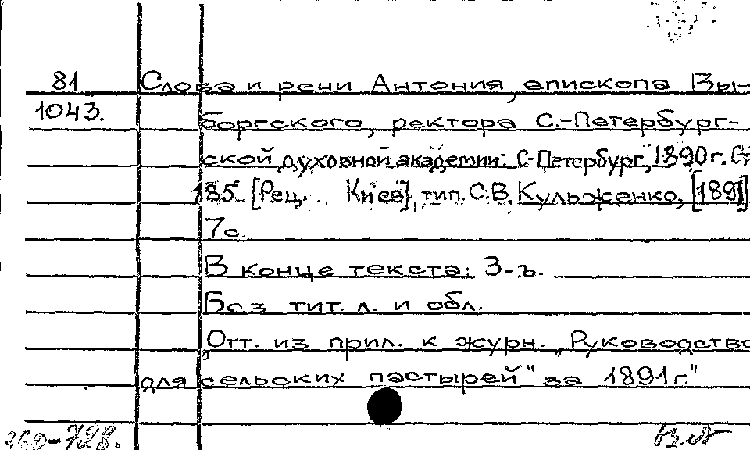 81
1043.
Слова и речи Антония, епископа Вы-
боргского, ректора С.-Петербург-
ской духовной академии: С-Петербург, 1890 г. Ст.
185. [Рец. Киев], тип. С.В. Кульженко, [1891]
7с.
В конце текста: З-ъ.
Без тит. л. и обл.
„Отт. из прил. к журн. „Руководство
для сельских пастырей" за 1891 г."